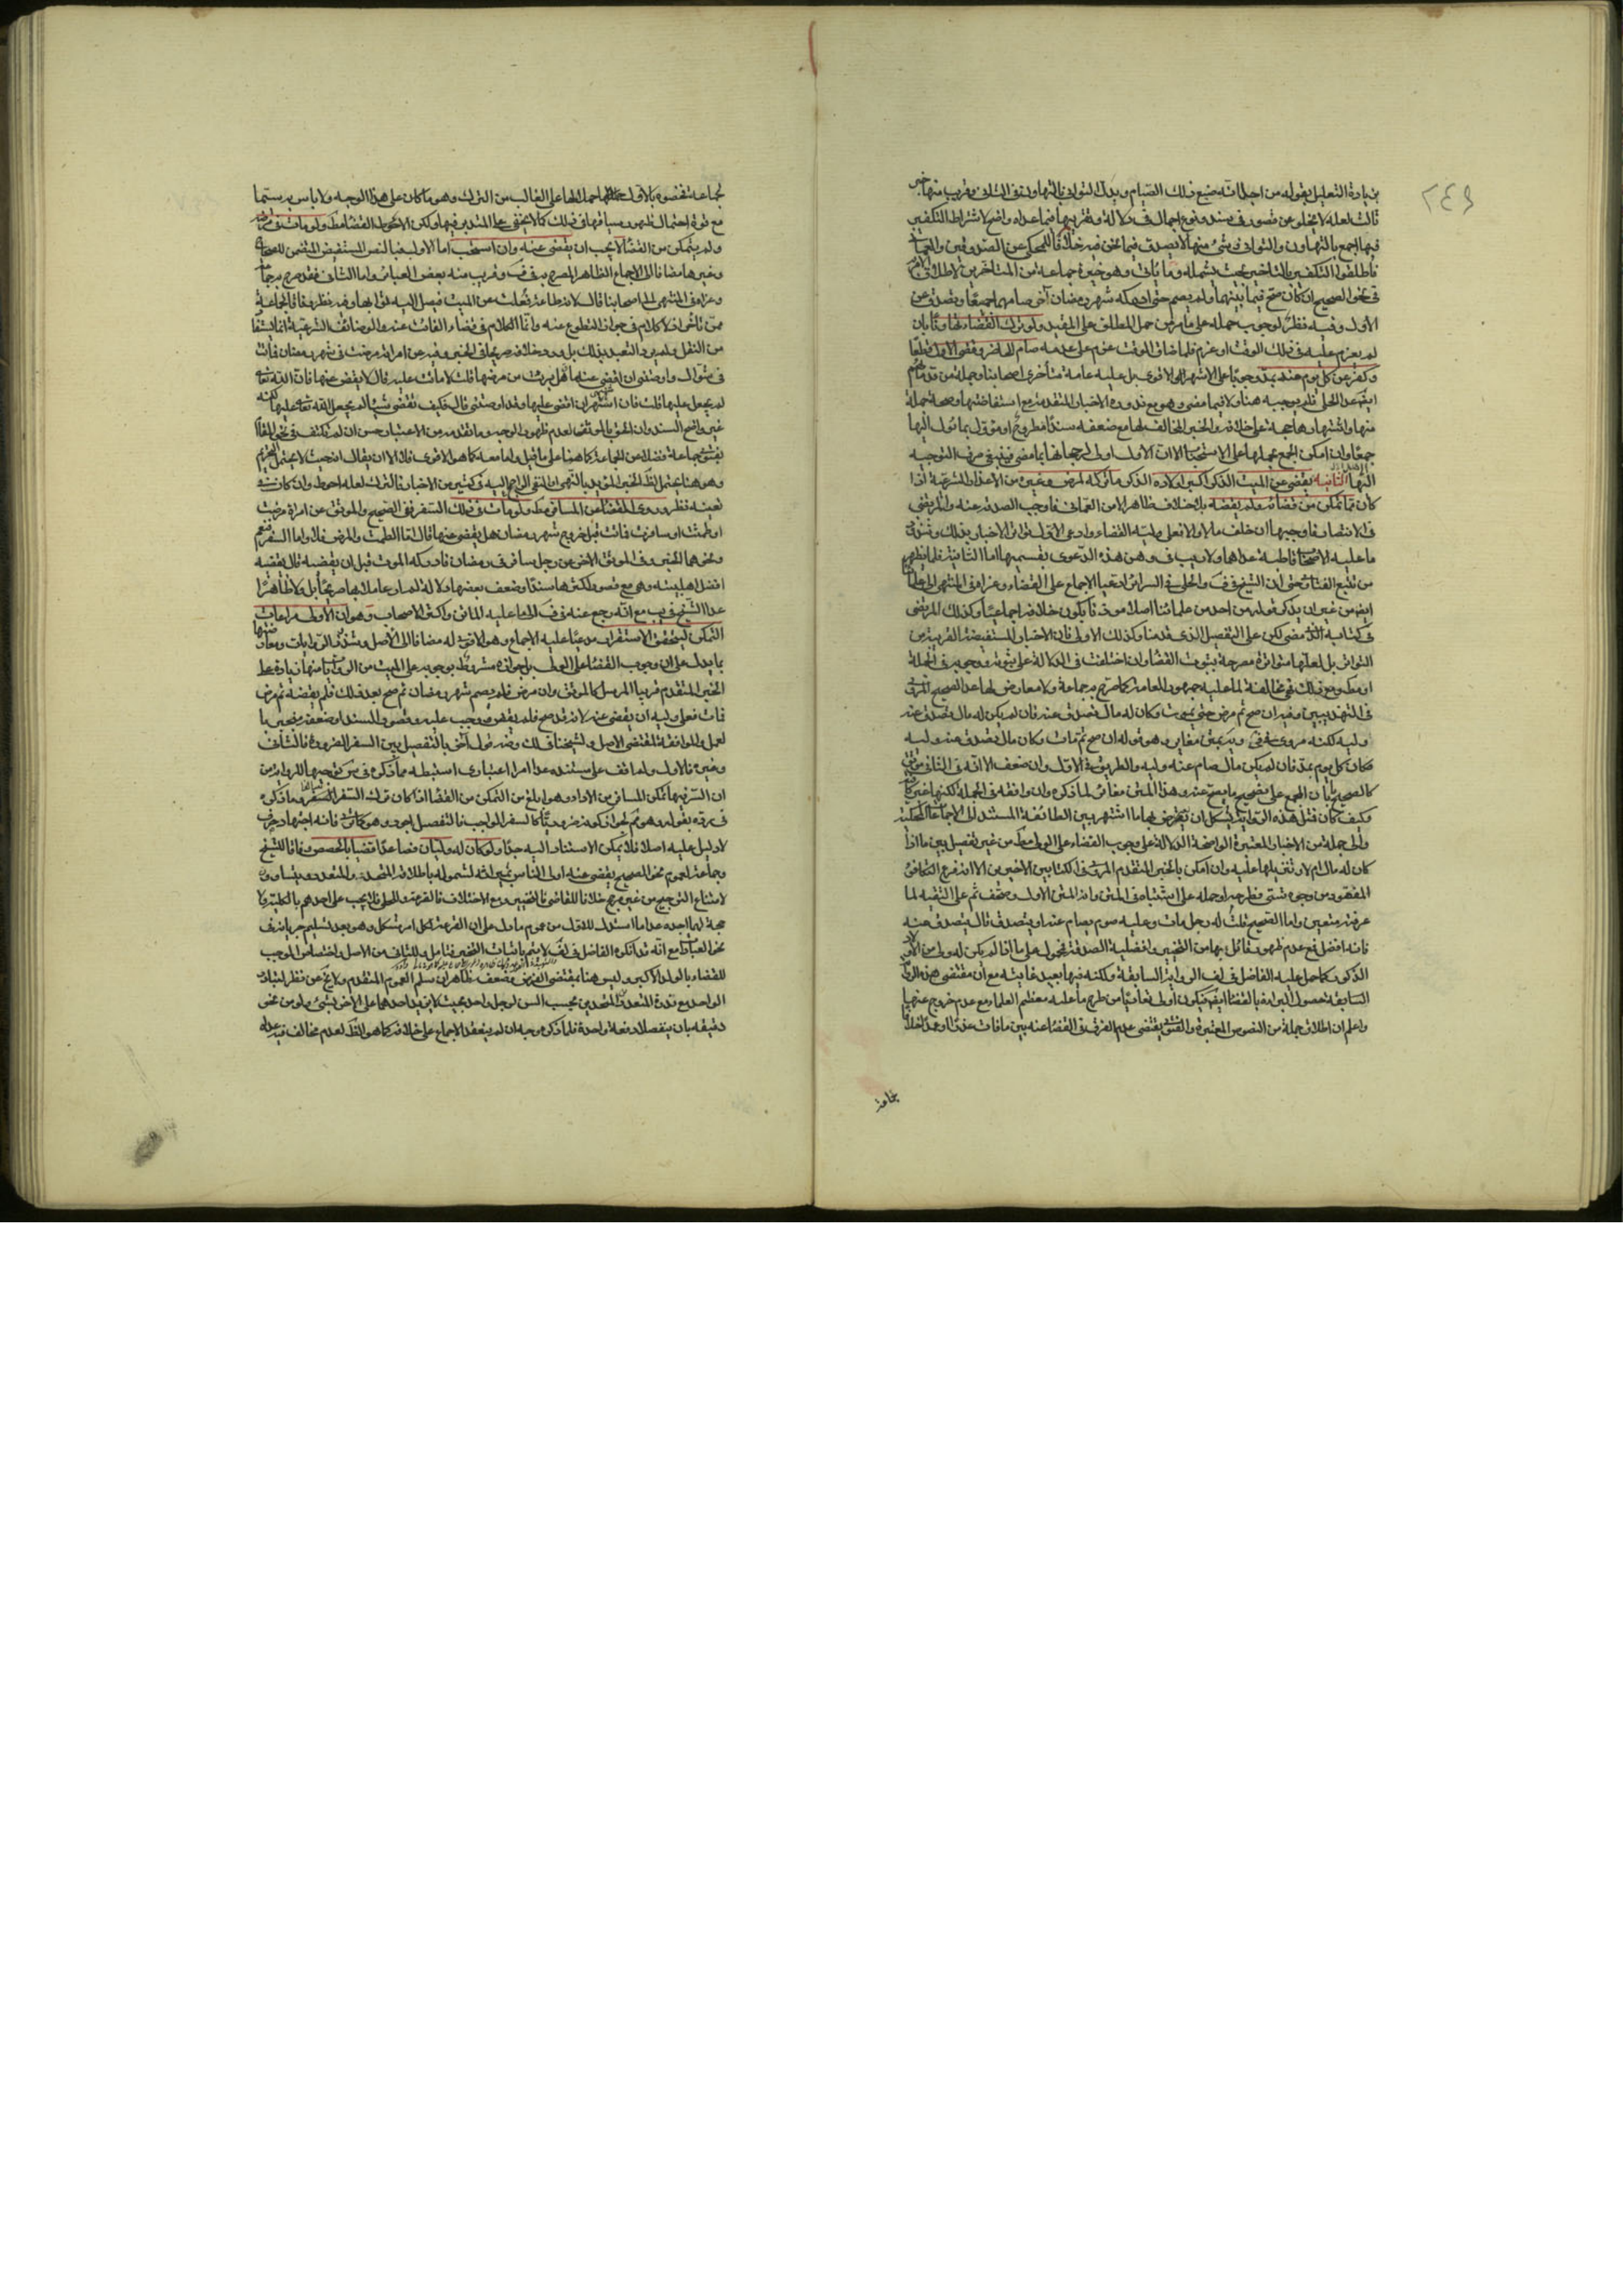 ٢٤٩
زيادة التعليل بقوله من اجل انه ضيع ذلك الصيام وبدل التواني بالتهاون في الثاني وقريب منها خبر
ثالث لعله لا يخلو عن قصور في سند ونوع اجمال في دلالة وتقريبها فيما عداه واضح لاشتراط التكفير
فيها اجمع بالتهاون والتواني في شئ منها لا يصدق فيما نحن فيه خلافا للمحكي عن الصدوقين والعماني
فاطلقوا التكفير بالتاخير بحيث يشمله وما ياتي وهو خيرة جماعة من المتاخرين لاطلاق الامر
في نحو الصحيح ان كان صح فيما بينهما ولم يصم حتى ادركه شهر رمضان آخر صامهما جميعا وتصدق عن
الاول وفيه نظر لوجوب حمله على ما مر من حمل المطلق على المقيد ولو ترك القضاء تهاونا بان
لم يعزم عليه في ذلك الوقت او عزم فلما ضاق الوقت عزم على عدمه صام الحاضر وقضى الاول مطلقا
وكفر عن كل يوم عنه بمد وجوبا على الاشهر الاقوى بل عليه عامة متأخري اصحابنا وجملة من قدمائهم
عدا الحلي فلم يوجبه هنا ولا فيما مضى وهو مع ندوره الاخبار المتقدمة مع استفاضتها وصحة جملة
منها واشتهارها حجة على خلافه والخبر المخالف لها مع ضعفه سندا مطروح او مؤول بما يؤل اليها
جمعا وان امكن الجمع بحملها على الاستحباب الا ان الاول اولى لرجحانها بما مضى فينبغي صرف التوجيه
اليها الثانيه يقضي عن الميت الذكر اكبر اولاده الذكور ما تركه لمرض وغيره من الاعذار الشرعية اذا
كان مما تمكن من قضائه ولم يقضه بلا خلاف ظاهر الا من العماني فاوجب الصدقة عنه والمرتضى
في الانتصار فاوجبها ان خلف مالا والا فعلى وليه القضاء وادعى الاول تواتر الاخبار بذلك وشذوذ
ما عليه الاصحاب قاطبة عداهما ولا ريب في وهن هذه الدعوى بقسميها اما الثانية فلما يظهر
من تتبع الفتاوى حتى ان الشيخ في ف والحلي في السرائر ادعيا الاجماع على القضاء وعزاه في المنتهى الى علمائنا
من غير ان يذكر قوله من احد من علمائنا اصلا موذنا بكون خلافه اجماعيا وكذلك المرتضى
في كتابيه الذ مضى لكن على التفصيل الذي قدمنا وكذلك الاولى فان الاخبار المستفيضة القريبة من
التواتر بل لعلها متواترة مصرحة بثبوت القضاء وان اختلفت في الدلالة على ثبوته ووجوبه في الجملة
او مطلقا ومع ذلك فهي مخالفة لما عليه جمهور العامة كما صرح به جماعة ولا معارض لها عدا الصحيح المروي
في التهذيبين وفيه ان صح ثم مرض حتى يموت وكان له مال تصدق عنه فان لم يكن له مال تصدق عنه
وليه لكنه مروي في في وبمتن مغاير وهو قوله ان صح ثم مات وكان مال تصدق عنه وليه
مكان كل يوم بمد فان لم يكن مال صام عنه وليه والطريق في الاول وان ضعف الا انه في الثاني موثق
كالصحيح بان الجمع على تصحيح ما يصح عنه وهذا المتن مغاير لما ذكره وان وافقه في الجملة لكنها غير كاف
وكيف كان فمثل هذه الرواية يشكل ان تعترض بها ما اشتهر بين الطائفة المستند الى الاجماعات المحكية
والى جملة من الاخبار المعتبرة الواضحة الدلالة على وجوب القضاء على الولي مط من غير تفصيل بين ما اذا
كان له مال ام لا وتنزيلها عليه وان امكن بالخبر المتقدم المروي في الكتابين الاخيرين الا انه فرع التكافؤ
المفقود من وجوه شتى فطرحه او حمله على اشتباه في المتن وانه المتن الاول وصحف ثم على التقيه لما
عرفته متعين واما الصحيح قلت له رجل مات وعليه صوم يصام عنه او يتصدق قال يتصدق عنه
فانه افضل فمع عدم ظهور قائل بهما من التخيير وافضلية الصدقة محمول على ما اذا لم يكن له ولي من الاولاد
الذكور كما حمل عليه الفاضل في لف الرواية السابقة ولكنه فيها بعيد غايته مع ان مقتضى هذه الرواية
السابقة حصول البراءة بالقضاء ايضا فيكون اولى تفاديا من طرح ما عليه معظم العلماء مع عدم خروج عنها
واعلم ان اطلاق جملة من النصوص المعتبرة والفتوى يقتضي عدم الفرق في القضاء عنه بين ما فات عمدا او عذرا خلافا
لجماعة فخصوه بالاول حملا لها على الغالب من الترك وهو ما كان على هذا الوجه ولا باس به سيما
مع قوة احتمال ظهور سياقها في ذلك كما لا يخفى على المتدبر فيها ولكن الاحوط القضاء مط ولو مات في مرضه
ولم يتمكن من القضاء لا يجب ان يقضى عنه وان استحب اما الاول فبالنص المستفيض المتضمن للصحاح
وغيرها مضافا الى الاجماع الظاهر المصرح به في ف وقريب منه بعض العبائر واما الثاني فقد صرح به جماعة
وعزاه في المنتهى الى اصحابنا قال لانه طاعة فعلت عن الميت فيصل اليه ثوابها وفيه نظر وفاقا لجماعة
ممن تاخر اذ لا كلام في جواز التطوع عنه وانما الكلام في قضاء الفائت عنه والوضائف الشرعية انما تستفاد
من النقل ولم يرد التعبد بذلك بل ورد خلافه صريحا في الخبر وفيه عن امراة مرضت في شهر رمضان فماتت
في شوال واوصتني ان اقضي عنها هل برئت من مرضها قلت لا ماتت عليه قال لا يقضى عنها فان الله تعالى
لم يجعل عليها قلت فان اشتهى ان اقضي عليها وقد اوصتني قال فكيف تقضي شيئا لم يجعل الله تعالى عليها لكنه
غير واضح السند وان الحق بالموثق لعدم ظهور الوجه وما تقدمه من الاعتبار حسن ان لم نكتف في نحو المقام
بفتوى جماعة فضلا عن الجماعة كما هنا على ما قيل واما معه كما هو الاقوى فلا الا ان يقال انه حيث لا يحتمل التحريم
وهو هنا يحتمل لظ الخبر المؤيد بالنهي او النفي الراجع اليه في كثير من الاخبار فالترك لعله احوط وان كان في
تعينه نظر وروى القضاء عن المسافر مط ولو مات في ذلك السفر ففي الصحيح والموثق عن امراة مرضت
او طمثت او سافرت فماتت قبل خروج شهر رمضان هل يقضى عنها قال اما الطمث والمرض فلا واما السفر فنعم
ونحوهما الخبر وفي الموثق الاخر عن رجل سافر في رمضان فادركه الموت قبل ان يقضيه قال يقضيه
افضل اهل بيته وهي مع قصور اكثرها سندا وضعف بعضها دلالة لم ار عاملا بها صريحا بل ولا ظاهرا
عدا الشيخ في يب مع انه رجع عنه في ف الى ما عليه الماتن واكثر الاصحاب وهو ان الاولى مراعات
التمكن ليتحقق الاستقرار مدعيا عليه الاجماع وهو الاقوى له مضافا الى الاصل وشذوذ الروايات ومعارضتها
بما يدل على ان وجوب القضاء على الولي بل جوازه مشروط بوجوبه على الميت من الروايات منها زيادة على
الخبر المتقدم قريبا المرسل كالموثق وان مرض فلم يصم شهر رمضان ثم صح بعد ذلك فلم يقضه ثم مرض
فمات فعلى وليه ان يقضي عنه لانه قد صح فلم يقض ووجب عليه وقصور السند او ضعفه منجبر بال
عمل والموافقة لمقتضى الاصل ولشيخنا في لك وضه قول آخر بالتفصيل بين السفر الضروري فالثاني
وغيره فالاول ولم اقف على مستنده عدا امرا اعتباريا استنبطه مما ذكره في س في توجيه الرواية من
ان السر فيها تمكن المسافر من الاداء وهو ابلغ من التمكن من القضاء الا اذا كان ترك السفر السائغ وما ذكره
في رده بقوله وهو ثم لجواز كونه ضروريا كالسفر الواجب فالتفصيل اجود وهو كما ترى فانه اجتهاد صرف
لا دليل عليه اصلا فلا يمكن الاستناد اليه جدا ولو كان له وليان فصاعدا قضيا بالحصص وفاقا للشيخ
وجماعة لعموم نحو الصحيح يقضي عنه اولى الناس بميراثه لشموله باطلاقه المتحد والمتعدد ويتساوون
لامتناع الترجيح من غير مرجح خلافا للقاضي فالتخيير ومع الاختلاف فالقرعة وللحلي فلا يجب على احدهم بالكلية ولا
حجة لهما اجده عدا ما استدل للاول من عموم ما دل على ان القرعة لكل امر مشكل وهو بعد تسليم جريانه في
نحو العبادات مع انه قد انكره الفاضل في لف لا يتم باثبات التخيير فتامل وللثاني من الاصل واختصاص الموجب
للقضاء بالولد الاكبر وليس هنا بمقتضى الفرض وضعفه ظاهر ان سلم العموم المتقدم ولا يخ عن نظر لتبادر
الواحد مع ندرة المتعددين المتحدين بحسب السن لرجل واحد بحيث لا يزيد احدهما على الاخر بشئ ولو من نحو
دقيقه بان ينفصلا دفعة واحدة فلما ذكره وجه ان لم ينعقد الاجماع على خلافه كما هو الظ لعدم مخالف فيه عداه